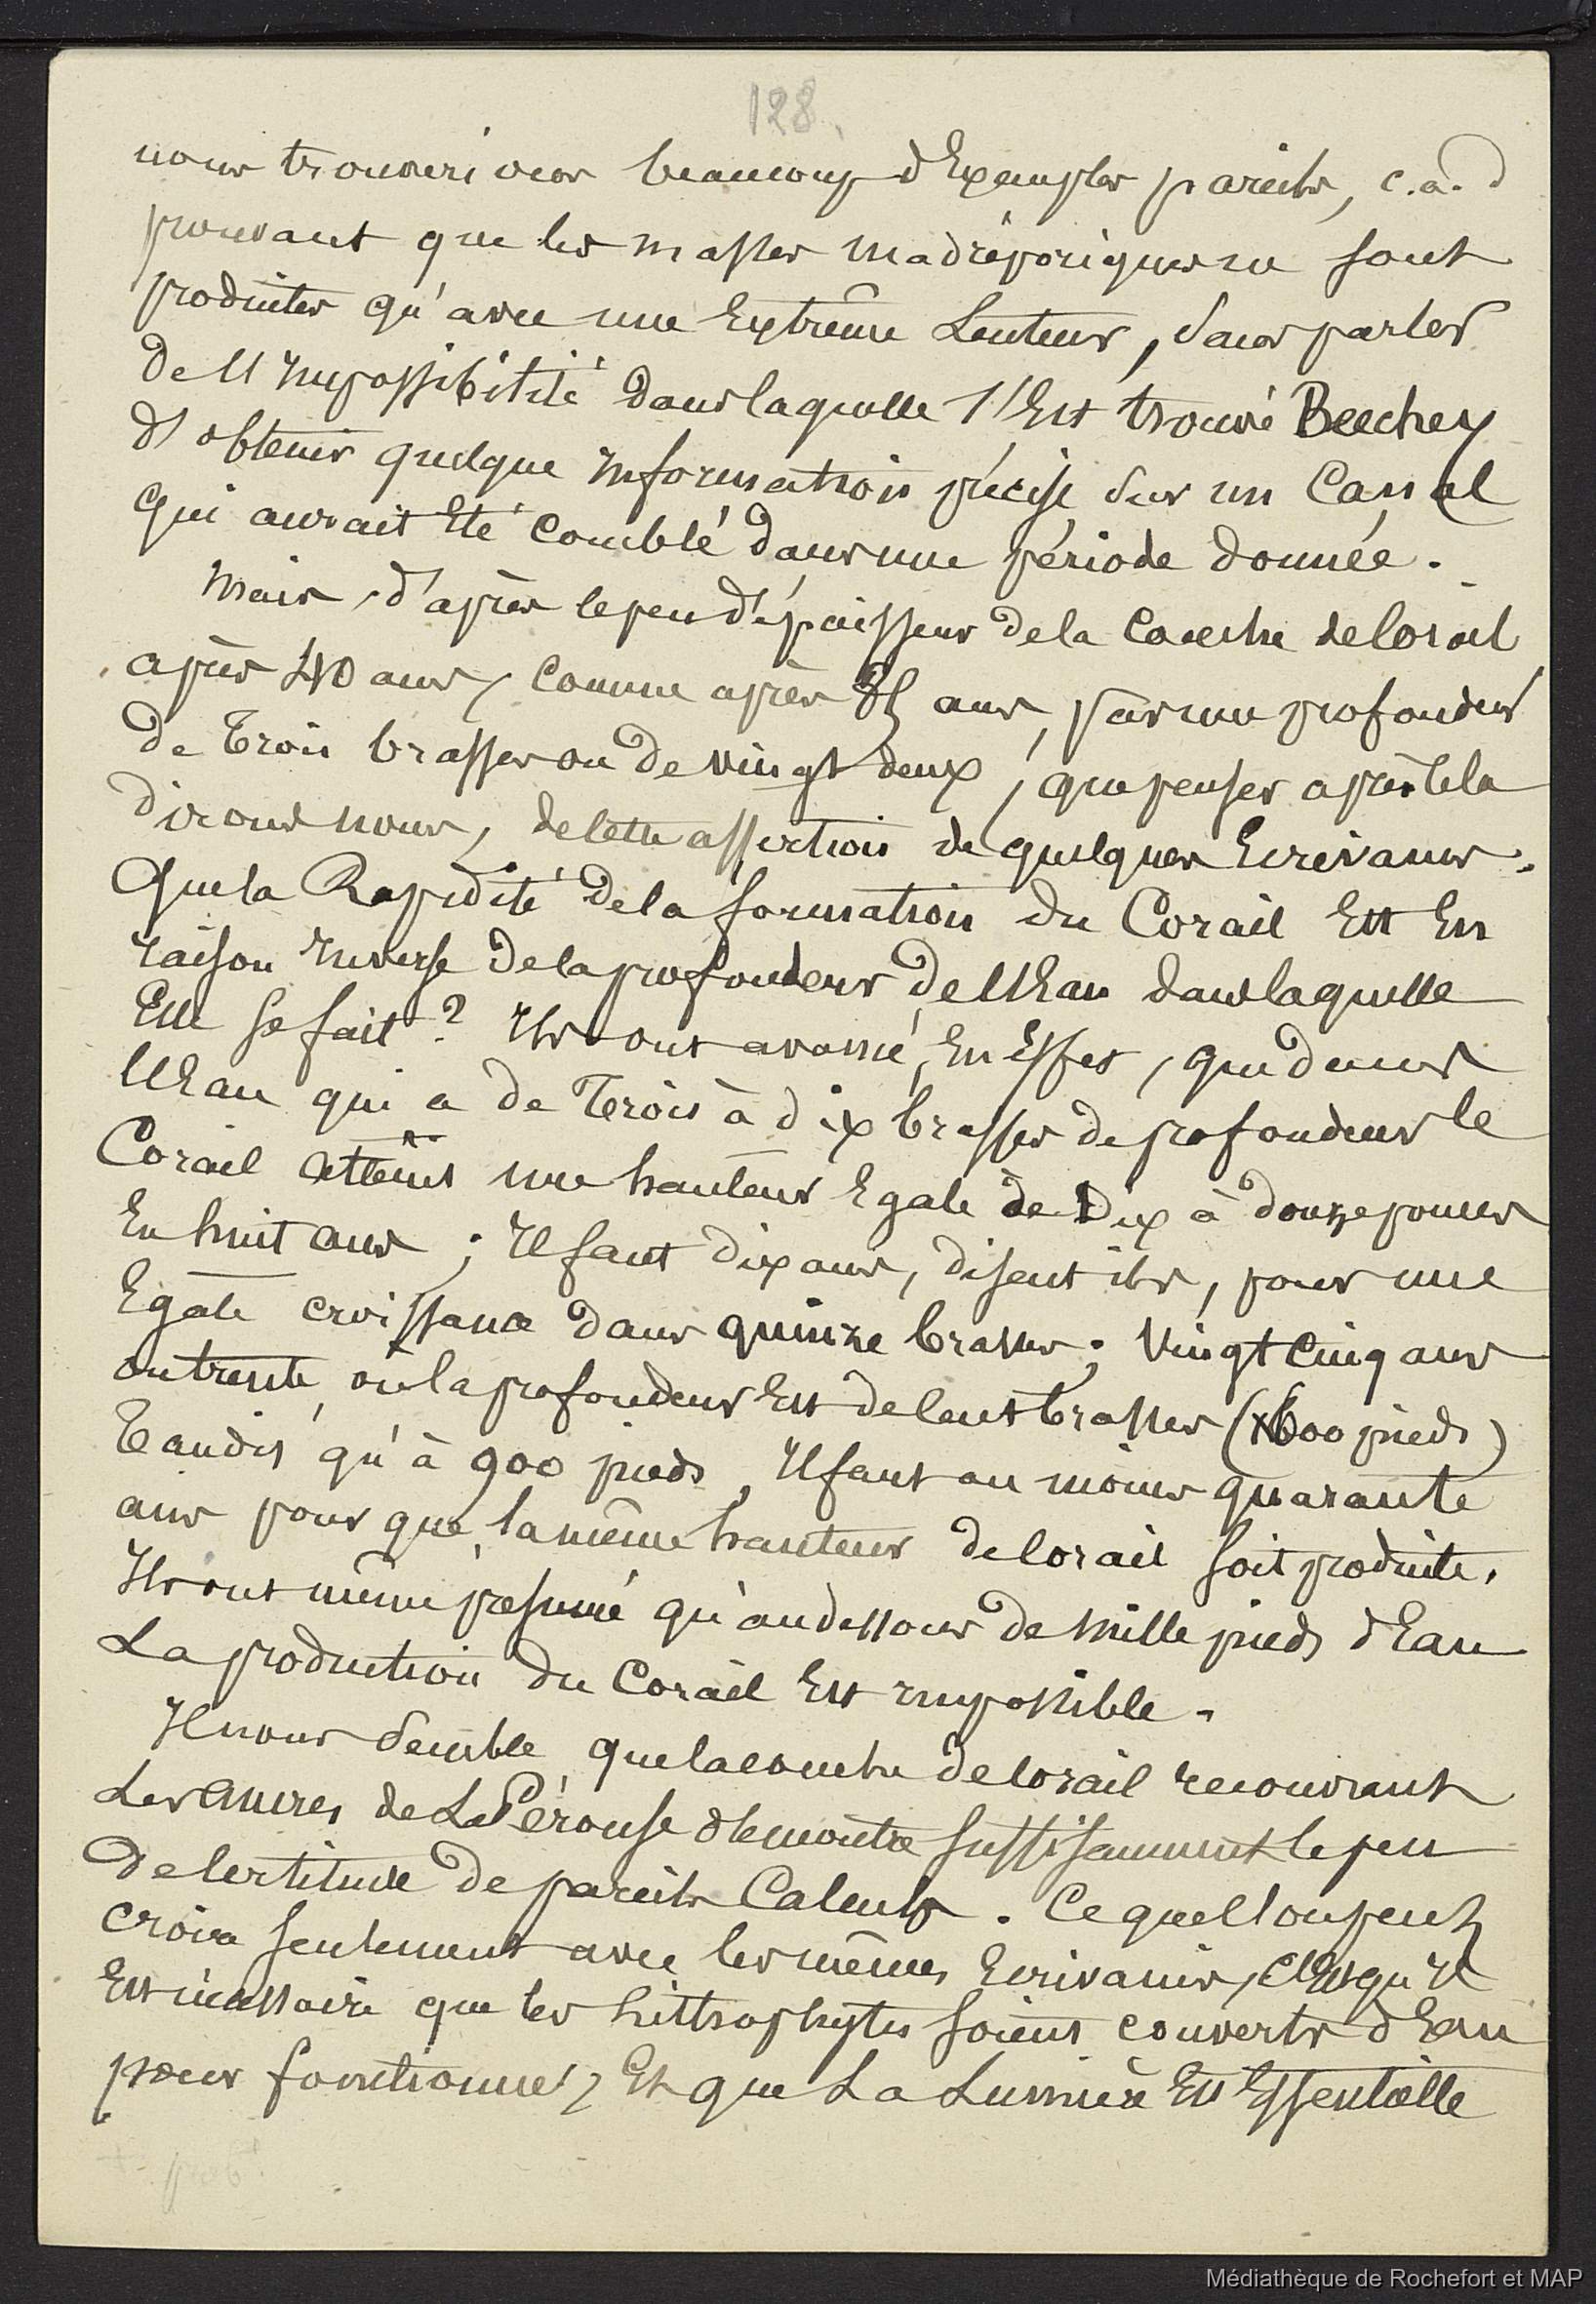 128.
nous trouverions beaucoup d'Exemples pareils, c.a.d
prouvant que les masses madréporiques ne sont
produites qu'avec une Extrême Lenteur, sans parler
de l'Impossibilité dans laquelle s'Est trouvé Beechey
d'obtenir quelque Information précise sur un Canal
qui aurait Eté comblé dans une période donnée.
Mais, d'après le peu d'épaisseur de la Couche de Corail
après 40 ans, comme après ans, par une profondeur
de Trois brasses ou de vingt deux, que penser après Cela
dirons nous, de Cette assertion de quelques Ecrivains,
Que la Rapidité de la formation du Corail Est En
raison Inverse de la profondeur de l'Eau dans laquelle
Elle se fait ? Ils ont avancé, En Effet, que dans
l'Eau qui a de Trois à dix brasses de profondeur le
Corail atteint une hauteur Egale de Dix à douze pouces
En huit ans ; Il faut dix ans, disent ils, pour une
Egale croissance dans quinze brasses ; Vingt Cinq ans
ou trente, où la profondeur Est de Cent brasses (600 pieds)
Tandis qu'à 900 pieds, Il faut au moins quarante
ans pour que la même hauteur de Corail soit produite.
Ils ont même présumé qu'au dessous de Mille pieds d'Eau
La production du Corail Est Impossible.
Il nous semble que la couche de Corail recouvrant
Les Ancres de La Pérouse démontre suffisamment le peu
de Certitude de pareils Calculs. Ce que l'on peut
croire seulement avec les mêmes Ecrivains, C'Est qu'Il
Est nécessaire que les lithophytes soient couverts d'Eau
pour fonctionner, Et que La Lumière Est Essentielle